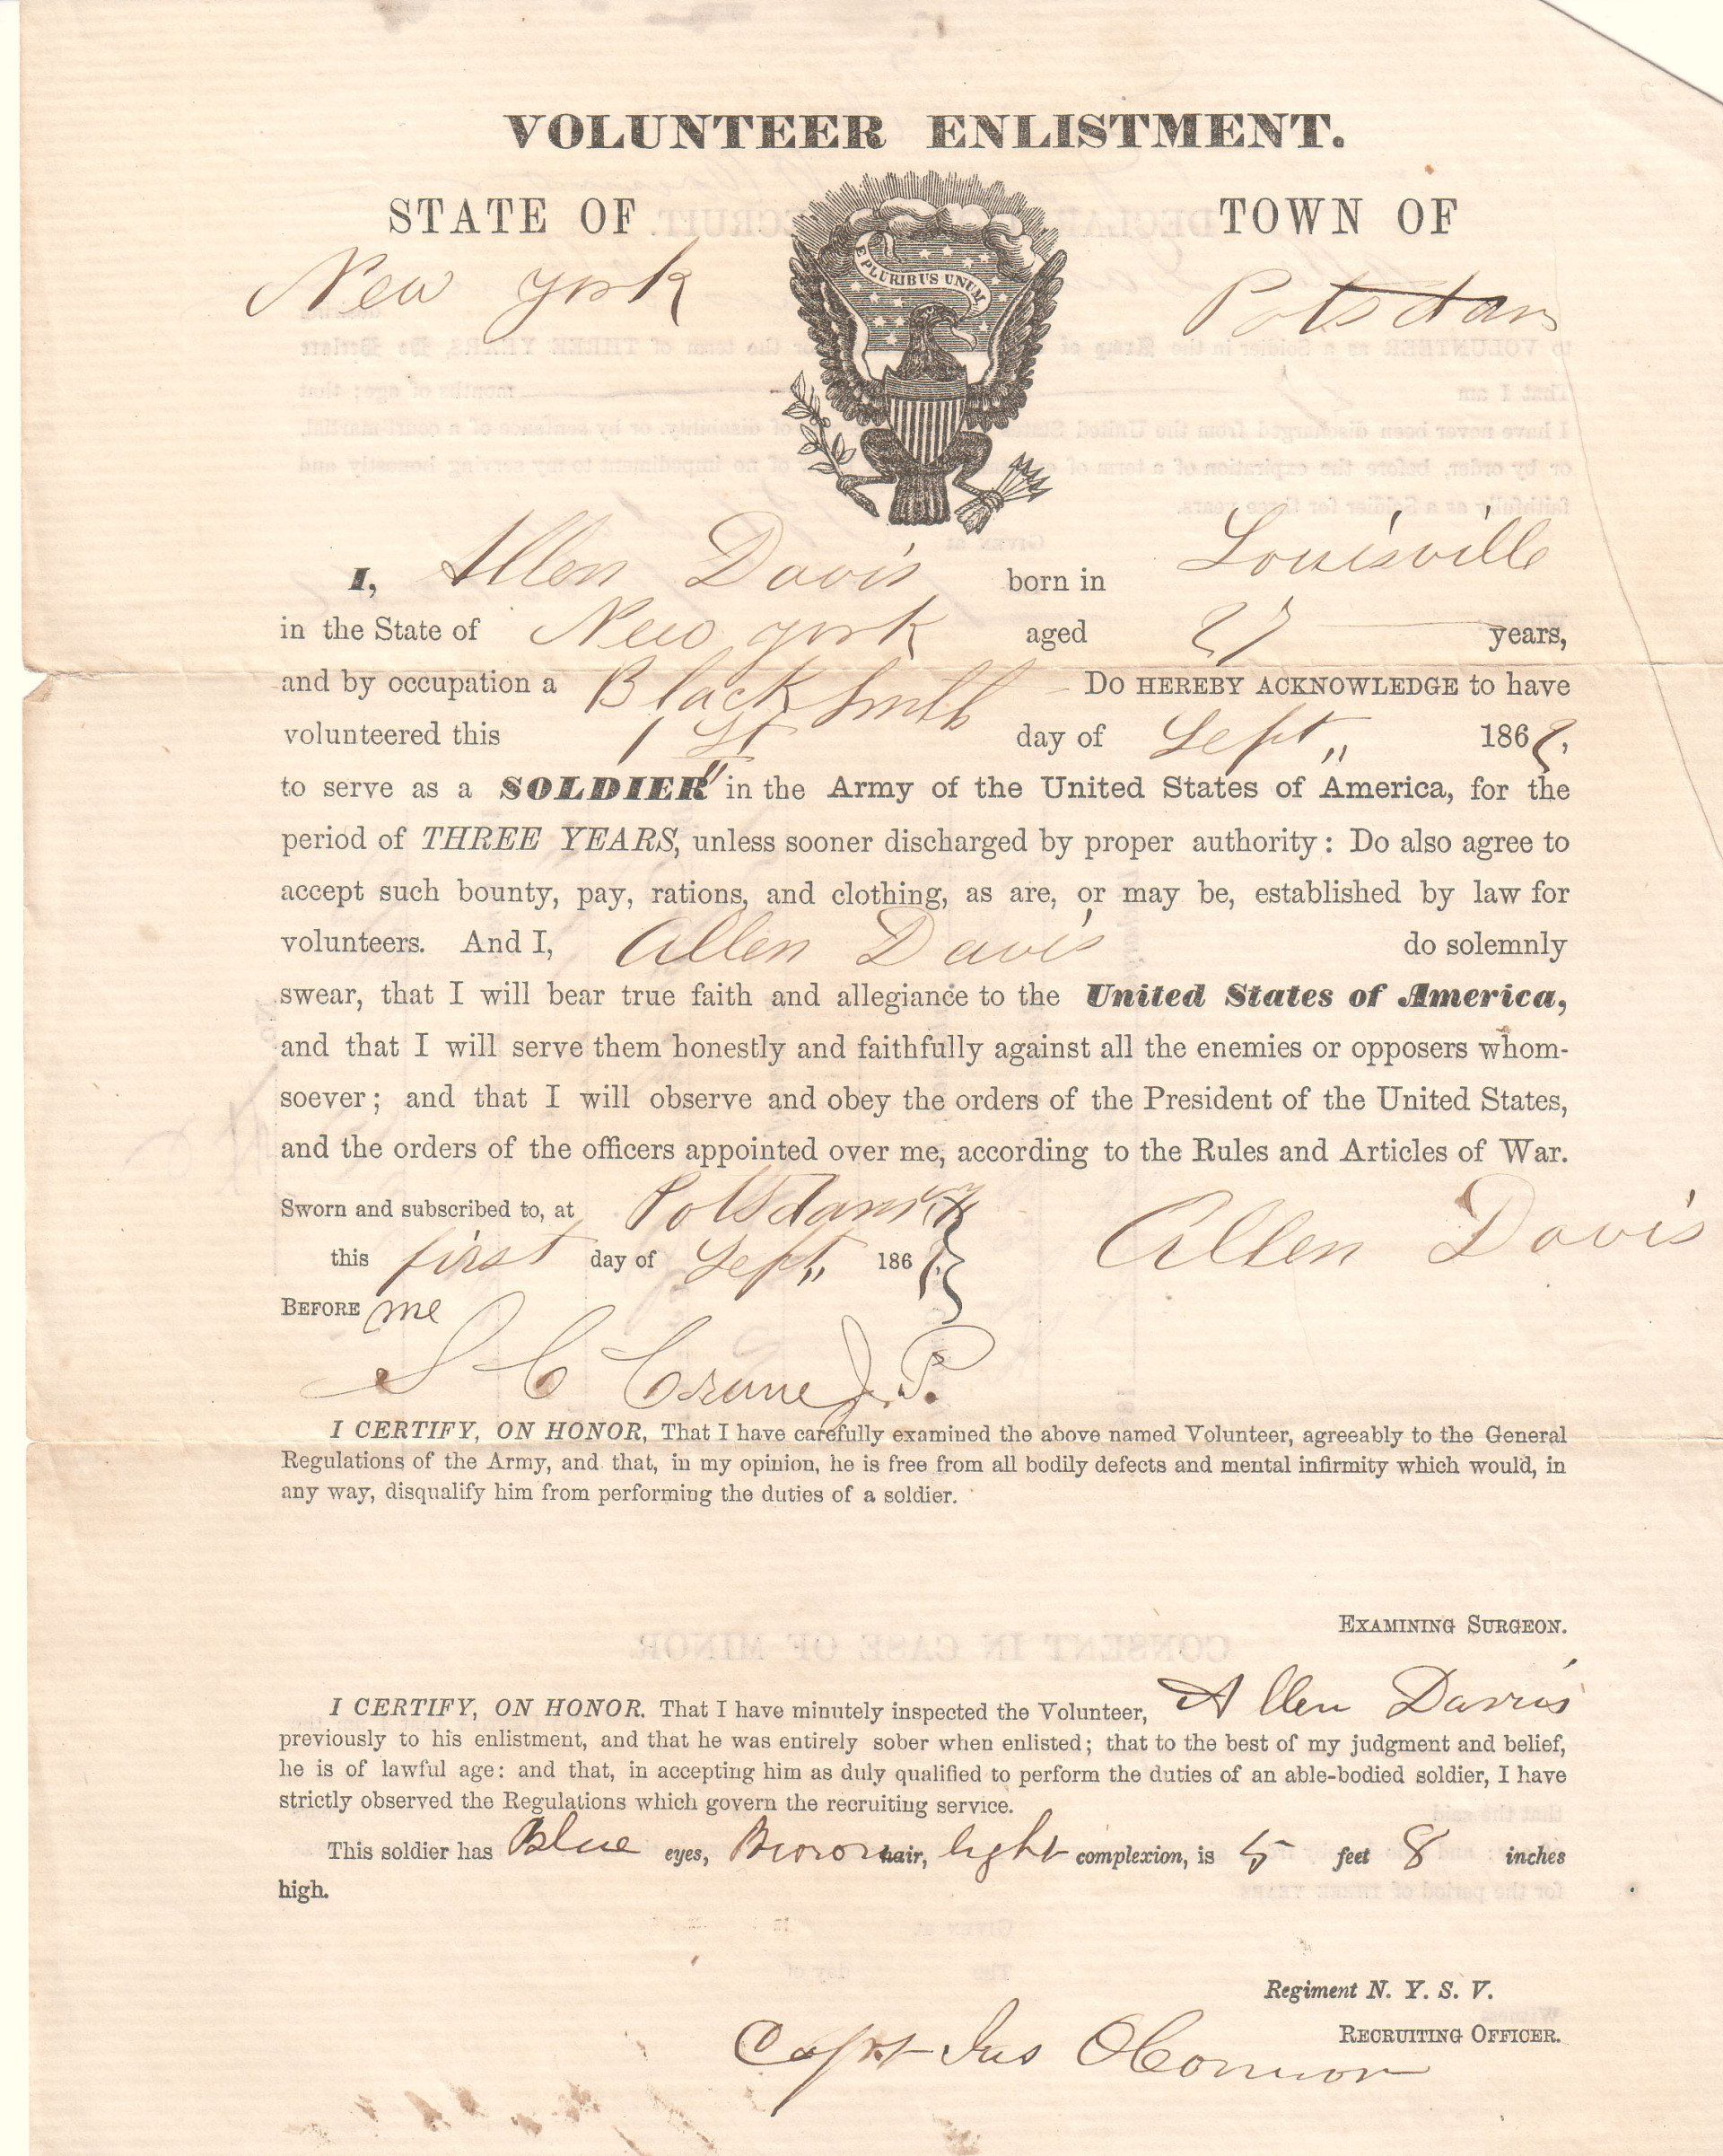 VOLUNTEER ENLISTMENT.
STATE OF TOWN OF
E PLURIBUS UNUM
New York Potsdam
I, Allen Davis born in Louisville
in the State of New York aged 27 years,
and by occupation a Black Smith DO HEREBY ACKNOWLEDGE to have
volunteered this 1st day of Sept,, 1862,
to serve as a SOLDIER in the Army of the United States of America, for the
period of THREE YEARS, unless sooner discharged by proper authority: Do also agree to
accept such bounty, pay, rations, and clothing, as are, or may be, established by law for
volunteers. And I, Allen Davis do solemnly
swear, that I will bear true faith and allegiance to the United States of America,
and that I will serve them honestly and faithfully against all the enemies or opposers whom-
soever; and that I will observe and obey the orders of the President of the United States,
and the orders of the officers appointed over me, according to the Rules and Articles of War.
Sworn and subscribed to, at Potsdam
this first day of Sept,, 1862 Allen Davis
BEFORE me
S C Crane J. P.
I CERTIFY, ON HONOR, That I have carefully examined the above named Volunteer, agreeably to the General
Regulations of the Army, and that, in my opinion, he is free from all bodily defects and mental infirmity which would, in
any way, disqualify him from performing the duties of a soldier.
EXAMINING SURGEON.
I CERTIFY, ON HONOR. That I have minutely inspected the Volunteer, Allen Davis
previously to his enlistment, and that he was entirely sober when enlisted; that to the best of my judgment and belief,
he is of lawful age: and that, in accepting him as duly qualified to perform the duties of an able-bodied soldier, I have
strictly observed the Regulations which govern the recruiting service.
This soldier has Blue eyes, Brown hair, light complexion, is 5 feet 8 inches
high.
Regiment N. Y. S. V.
RECRUITING OFFICER.
Capt Jas OConnor